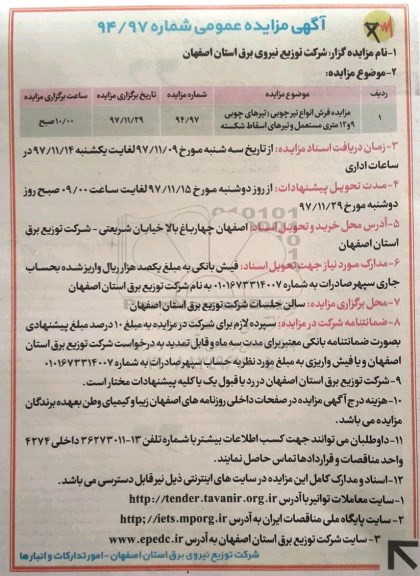 آگهی مزایده عمومی شماره ۹۴/۹۷
۱-نام مزایده گزار: شرکت توزیع نیروی برق استان اصفهان
۲-موضوع مزایده:
ردیف موضوع مزایده شماره مزایده تاریخ برگزاری مزایده ساعت برگزاری مزایده
۱ مزایده فرش انواع تیر چوبی (تیرهای چوبی ۹و۱۲ متری مستعمل و تیرهای اسقاط شکسته ۹۴/۹۷ ۹۷/۱۱/۲۹ ۱۰/۰۰ صبح
۳-زمان دریافت اسناد مزایده: از تاریخ سه شنبه مورخ ۹۷/۱۱/۰۹ لغایت یکشنبه ۹۷/۱۱/۱۴ در
ساعات اداری
۴-مدت تحویل پیشنهادات: از روز دوشنبه مورخ ۹۷/۱۱/۱۵ لغایت ساعت ۰۹/۰۰ صبح روز
دوشنبه مورخ ۹۷/۱۱/۲۹
۵-آدرس محل خرید و تحویل اسناد: اصفهان چهارباغ بالا خیابان شریعتی - شرکت توزیع برق
استان اصفهان
۶-مدارک مورد نیاز جهت تحویل اسناد: فیش بانکی به مبلغ یکصد هزار ریال واریز شده بحساب
جاری سپهر صادرات به شماره ۰۱۰۱۶۷۳۳۱۴۰۰۷ به نام شرکت توزیع برق استان اصفهان
۷-محل برگزاری مزایده: سالن جلسات شرکت توزیع برق استان اصفهان
۸-ضمانتنامه شرکت در مزایده: سپرده لازم برای شرکت در مزایده به مبلغ ۱۰ درصد مبلغ پیشنهادی
بصورت ضمانتنامه بانکی معتبر برای مدت سه ماه و قابل تمدید به درخواست شرکت توزیع برق استان
اصفهان و یا فیش واریزی به مبلغ مورد نظر به حساب سپهر صادرات به شماره ۰۱۰۱۶۷۳۳۱۴۰۰۷
۹-شرکت توزیع برق استان اصفهان در رد یا قبول یک یا کلیه پیشنهادات مختار است.
۱۰-هزینه درج آگهی مزایده در صفحات داخلی روزنامه های اصفهان زیبا و کیمیای وطن بعهده برندگان
مزایده می باشد.
۱۱-داوطلبان می توانند جهت کسب اطلاعات بیشتر با شماره تلفن ۱۳-۳۶۲۷۳۰۱۱ داخلی ۴۲۷۴
واحد مناقصات و قراردادها تماس حاصل نمایند.
۱۲-اسناد و مدارک کامل این مزایده در سایت های اینترنتی ذیل نیز قابل دسترسی می باشد.
۱-سایت معاملات توانیر با آدرس http://tender.tavanir.org.ir
۲- سایت پایگاه ملی مناقصات ایران به آدرس http;//iets.mporg.ir
۳- سایت شرکت توزیع برق استان اصفهان به آدرس www.epedc.ir
شرکت توزیع نیروی برق استان اصفهان - امور تدارکات و انبارها